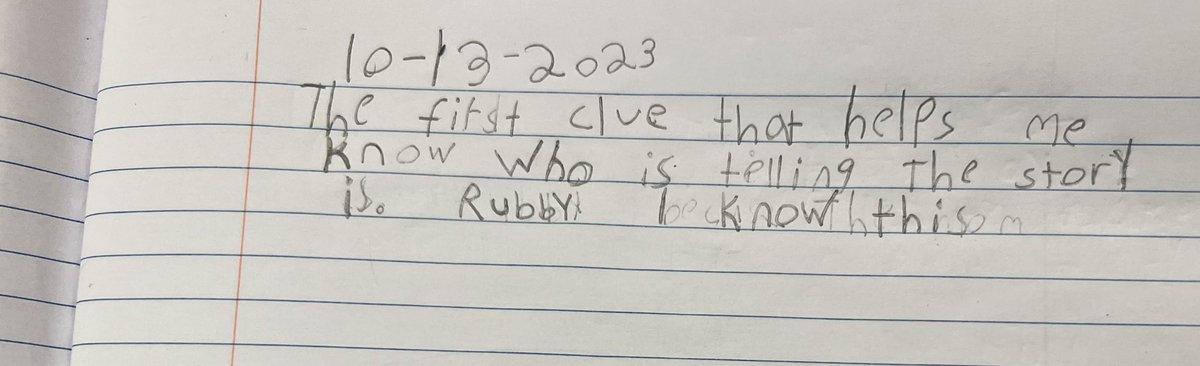 10-13-2023
The first clue that helps me
know who is telling The story
is. Rubby